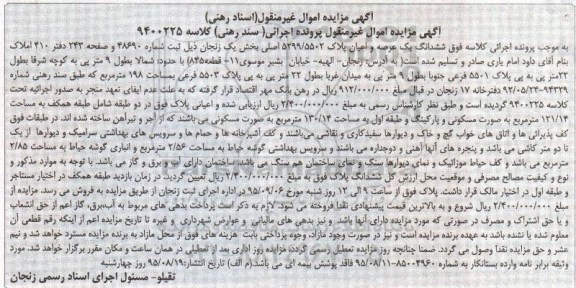 آگهی مزایده اموال غیرمنقول(اسناد رهنی)
آگهی مزایده اموال غیرمنقول پرونده اجرائی( سند رهنی) کلاسه ۹۴۰۰۲۲۵
به موجب پرونده اجرائی کلاسه فوق ششدانگ یک عرصه و اعیان پلاک ۵۲۹۹/۵۵۰۲ اصلی بخش یک زنجان ذیل ثبت شماره ۴۸۶۹۰ و صفحه ۲۴۳ دفتر ۳۱۰ املاک
بنام آقای داود امام یاری صادر و تسلیم شده است( به آدرس: زنجان - الهیه- خیابان بشیر موسوی۱۱- قطعه۸۴۵) با حدود: شمالا بطول ۹ متر پی به کوچه شرقا بطول
۲۲متر پی به پی پلاک ۵۵۰۱ فرعی جنوبا بطول ۹ متر پی به میدان غربا بطول ۲۲ متر پی به پی پلاک ۵۵۰۳ فرعی بمساحت ۱۹۸ مترمربع که طبق سند رهنی شماره
۹۴۳۲۹-۹۲/۰۵/۲۳ دفترخانه ۱۷ زنجان در قبال مبلغ ۹۱۲/۰۰۰/۰۰۰ ریال در رهن بانک مهر اقتصاد قرار گرفته که به علت عدم ایفای تعهد منجر به صدور اجرائیه تحت
کلاسه ۹۴۰۰۲۲۵ گردیده است و طبق نظر کارشناس رسمی به مبلغ ۲/۴۰۰/۰۰۰/۰۰۰ ریال ارزیابی شده و اعیانی پلاک فوق در دو طبقه شامل طبقه همکف به مساحت
۱۲۱/۱۴ مترمربع به صورت مسکونی و پارکینگ و طبقه اول به مساحت ۱۳۰/۱۴ مترمربع به صورت مسکونی می‌باشند که از آجر و تیرآهن ساخته شده اند. در طبقات فوق
کف پذیرائی ها و اتاق های خواب گچ و خاک و دیوارها سفیدکاری و نقاشی می‌باشند و کف آشپزخانه ها و حمام ها و سرویس های بهداشتی سرامیک و دیوارها از یک
تا دو متر کاشی می باشد و پنجره های آنها آهنی و دوجداره می باشند و سرویس بهداشتی گوشه حیاط به مساحت ۲/۵۶ مترمربع و انباری گوشه حیاط به مساحت ۲/۸۵
مترمربع می باشد و کف حیاط موزائیک و نمای دیوارها سنگ و نمای ساختمان هم سنگ می باشد ساختمان دارای آب و برق و گاز می باشد. با توجه به موارد مذکور و
نوع و کیفیت مصالح مصرفی و موقعیت محل ارزش کل ششدانگ پلاک فوق به مبلغ ۲/۴۰۰/۰۰۰/۰۰۰ ریال تعیین گردید. در زمان بازدید طبقه همکف در اختیار مستاجر
و طبقه اول در اختیار مالک قرار داشت. پلاک فوق از ساعت ۹ الی ۱۲ روز شنبه مورخ ۹۵/۰۹/۰۶ در اداره اجرای ثبت زنجان از طریق مزایده به فروش می رسد. مزایده از
۲/۴۰۰/۰۰۰/۰۰۰ ریال شروع و به بالاترین قیمت پیشنهادی نقدا فروخته می شود؛ لازم به ذکر است پرداخت بدهی های مربوط به آب،برق، گاز اعم از حق انشعاب
و یا حق اشتراک و مصرف در صورتی که مورد مزایده دارای آنها باشد و نیز بدهی های مالیاتی و عوارض شهرداری و غیره تا تاریخ مزایده اعم از اینکه رقم قطعی آن
معلوم شده یا نشده باشد به عهده برنده مزایده است و نیز در صورت وجود مازاد، وجوه پرداختی بابت هزینه های فوق از محل مازاد به برنده مزایده مسترد خواهد شد و نیم
عشر و حق مزایده نقدا وصول می گردد. ضمنا چنانچه روز مزایده تعطیل رسمی گردد؛ مزایده روز اداری بعد از تعطیلی در همان ساعت و مکان مقرر برگزار خواهد شد. مورد
وثیقه برابر نامه وارده بستانکار به شماره ۸۵۰۰۳۹۶۰-۹۵/۰۸/۱۱ فاقد پوشش بیمه ای می باشد.(م الف) تاریخ انتشار:۹۵/۰۸/۱۹ روز چهارشنبه
تقیلو- مسئول اجرای اسناد رسمی زنجان